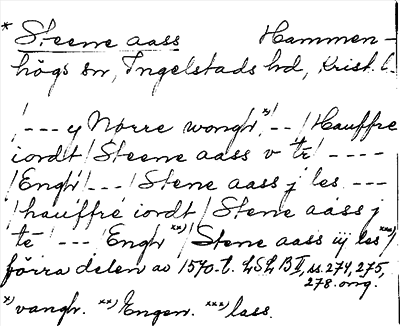 * Steene aass Hammen-
högs sn, Ingelstads hd, Krist. l.
/--- y Nörre wongh x) /--/ Hauffre
iordt / Steene aass v tē / ----
/ Engh / --- / Stene aass j les. ---
/ hauffre iordt / Stene aass j
tē / --- / Engh xx) / Stene aass iij les xxx) /
förra delen av 1570-t. LSLB II, ss. 274, 275,
278. orig.
x) vangh. xx) Engen. xxx) lass.